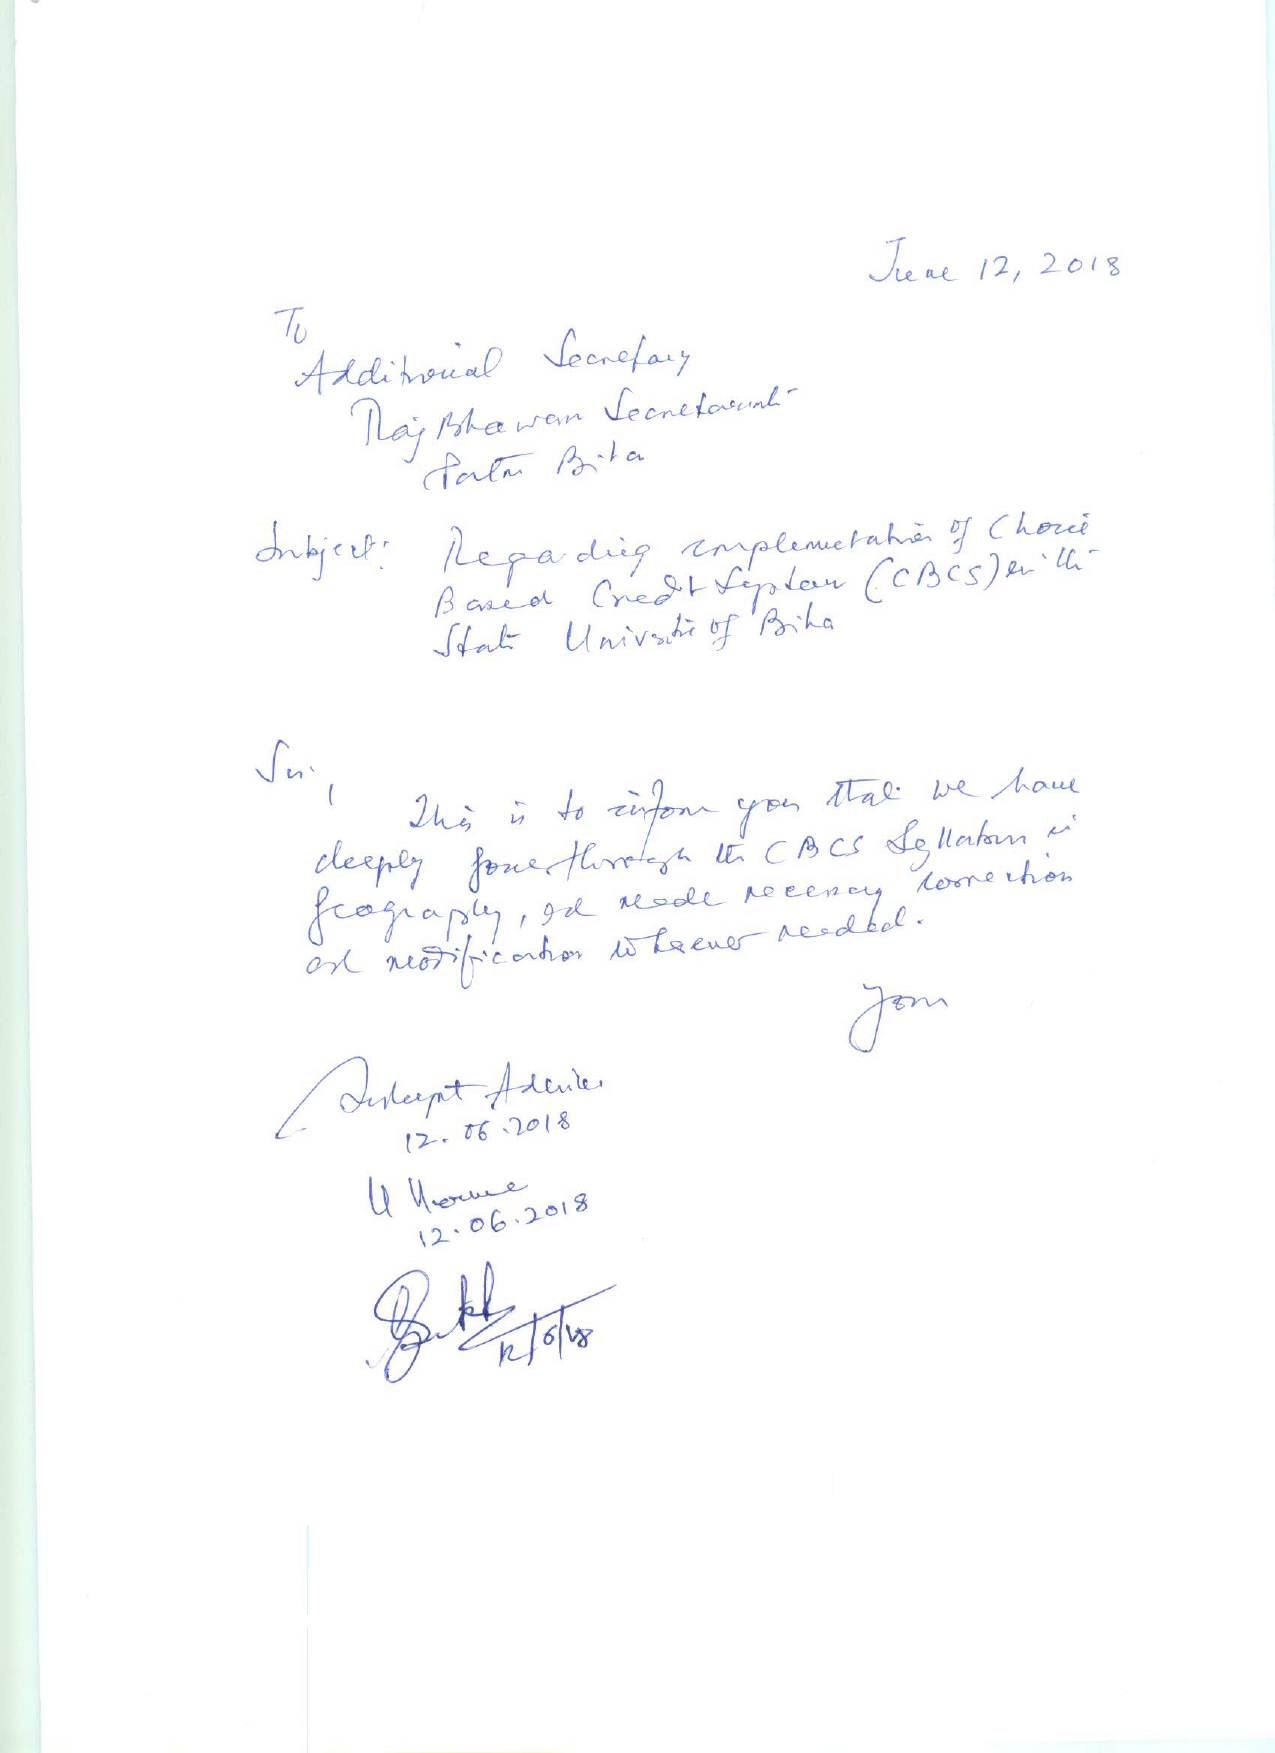 June 12, 2018
To
Additional Secretary
Raj Bhawan Secretariat
Patna Bihar
Subject: Regarding implementation of Choice
Based Credit System (CBCS) in the
State Universitie of Bihar
Sir,
This is to inform you that we have
deeply gone through the CBCS Syllabus in
Geography, and made necessary correction
and modification wherever needed.
Your
12.06.2018
12.06.2018
12/6/18